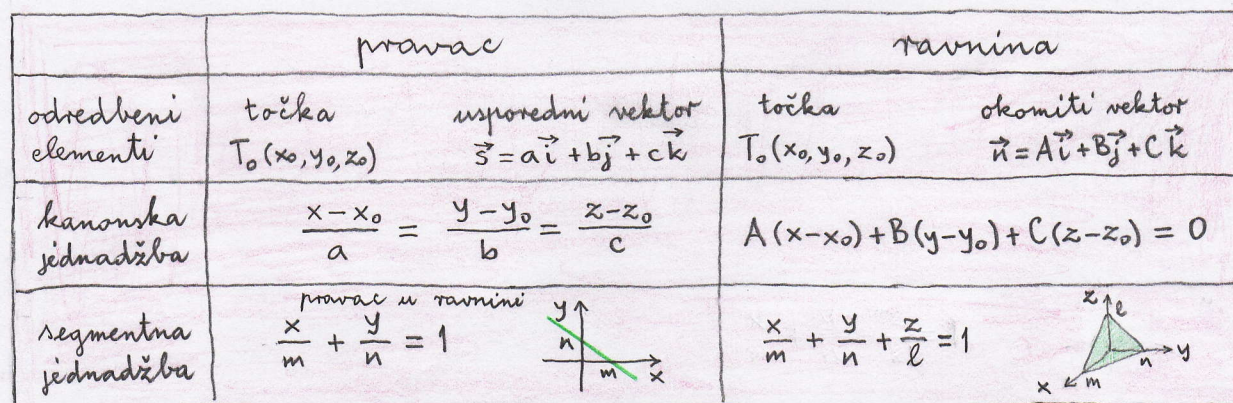 pravac ravnina
odredbeni elementi
točka usporedni vektor
T₀(x₀,y₀,z₀) s⃗ = ai⃗ + bj⃗ + ck⃗
točka okomiti vektor
T₀(x₀,y₀,z₀) n⃗ = Ai⃗ + Bj⃗ + Ck⃗
kanonska
jednadžba
(x-x₀)/a = (y-y₀)/b = (z-z₀)/c
A(x-x₀)+B(y-y₀)+C(z-z₀) = 0
segmentna
jednadžba
pravac u ravnini
x/m + y/n = 1
y
n
m x
x/m + y/n + z/l = 1
z l
n y
x m